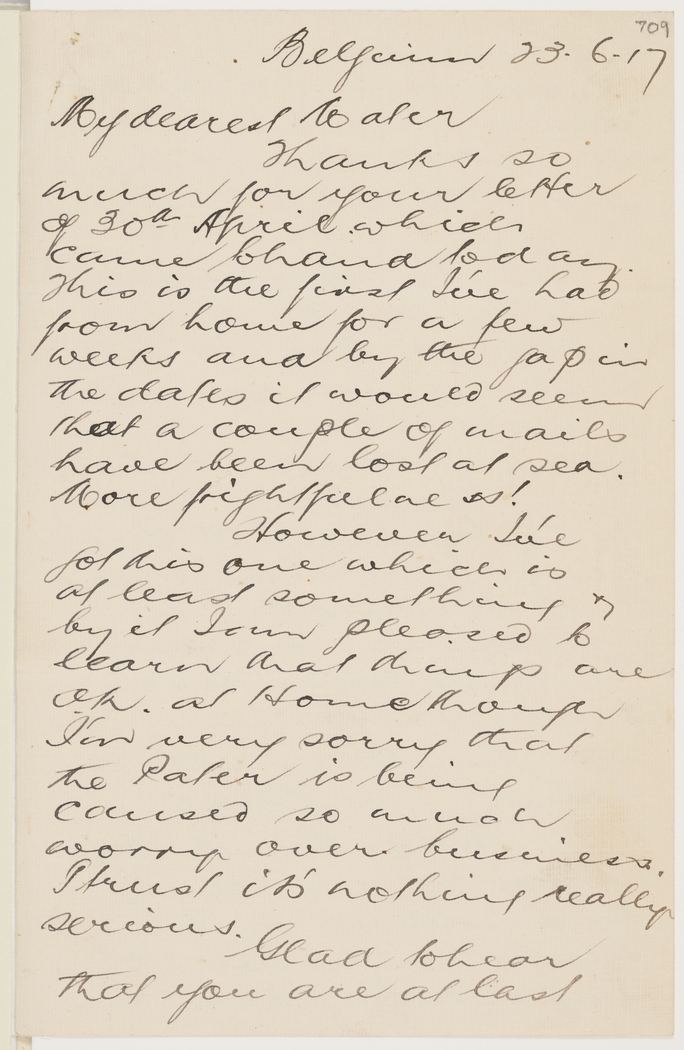 709
Belgium 23-6-17
My dearest Mater
Thanks so
much for your letter
of 30th April which
came to hand today.
This is the first I've had
from home for a few
weeks and by the gap in
the dates it would seem
that a couple of mails
have been lost at sea.
More frightfulness!
However I've
got this one which is
at least something &
by it I am pleased to
learn that things are
O.K. at Home though
I'm very sorry that
the Pater is being
caused so much
worry over business.
I trust it's nothing really
serious.
Glad to hear
that you are at last